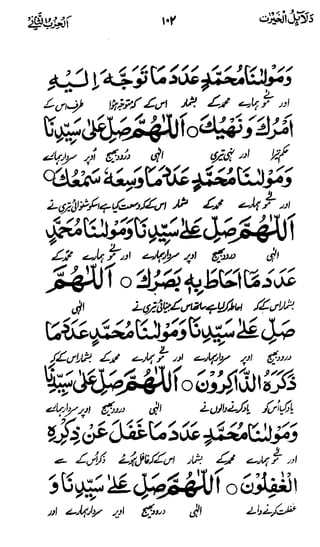 دلائل الخیرات ۱۰۲ الحزب الثانی
وَمَوْلٰنَا مُحَمَّدٍ عَدَدَ مَا تَوَجَّهَ اِلَيْهِ
اور مولیٰ ہمارے محمد کے بشمار اس کے کہ متوجہ ہوا طرف اس کے
اَمْرُكَ وَنَهْيُكَ ○ اَللّٰهُمَّ صَلِّ عَلٰى سَيِّدِنَا
حکم تیرا اور نہی تیری الٰہی درود بھیج اوپر سردار ہمارے
وَمَوْلٰنَا مُحَمَّدٍ عَدَدَ مَا وَسِعَهٗ سَمْعُكَ ○
اور مولیٰ ہمارے محمد کے شمار اس کے کہ وسعت کیا ہے اسکو شنوائی تیری نے
اَللّٰهُمَّ صَلِّ عَلٰى سَيِّدِنَا وَمَوْلٰنَا مُحَمَّدٍ
الٰہی درود بھیج اوپر سردار ہمارے اور مولیٰ ہمارے محمد کے
عَدَدَ مَا اَحَاطَ بِهٖ بَصَرُكَ ○ اَللّٰهُمَّ
بشمار اس کے کہ احاطہ کرلیا ہے ساتھ اس کے بینائی تیری نے الٰہی
صَلِّ عَلٰى سَيِّدِنَا وَمَوْلٰنَا مُحَمَّدٍ عَدَدَ مَا
درود بھیج اوپر سردار ہمارے اور مولیٰ ہمارے محمد کے بشمار اس کے کہ
ذَكَرَهُ الذَّاكِرُوْنَ ○ اَللّٰهُمَّ صَلِّ عَلٰى سَيِّدِنَا
یاد کیا اس کو یاد کرنے والوں نے الٰہی درود بھیج اوپر سردار ہمارے
وَمَوْلٰنَا مُحَمَّدٍ عَدَدَ مَا غَفَلَ عَنْ ذِكْرِهِ
اور مولیٰ ہمارے محمد کے بشمار اس کے کہ غافل ہوئے ذکر اس کے سے
الْغٰفِلُوْنَ ○ اَللّٰهُمَّ صَلِّ عَلٰى سَيِّدِنَا وَ
غفلت کرنے والے الٰہی درود بھیج اوپر سردار ہمارے اور